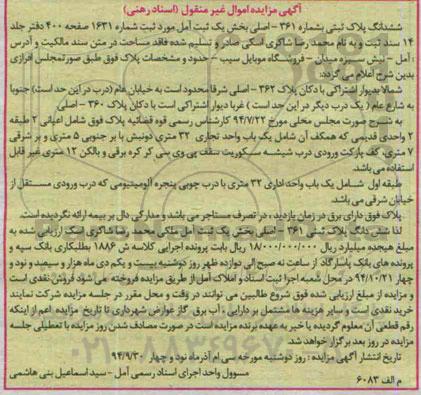 آگهی مزایده اموال غیر منقول (اسناد رهنی)
ششدانگ پلاک ثبتی بشماره ۳۶۱ - اصلی بخش یک ثبت آمل مورد ثبت شماره ۱۶۳۱ صفحه ۴۰۰ دفتر جلد
۱۴ سند ثبت و به نام محمد رضا شاکری اسکی صادر و تسلیم شده فاقد مساحت در متن سند مالکیت و آدرس
: آمل - نبش سبزه میدان - فروشگاه موبایل سیب - حدود و مشخصات پلاک فوق طبق صورتمجلس افرازی
بدین شرح اعلام می گردد:
شمالا بدیوار اشتراکی با دکان پلاک ۳۶۲ - اصلی شرقا محدود است به خیابان عام (درب در این حد است) جنوبا
به شارع عام (یک درب دیگر در این حد است ) غربا دیوار اشتراکی است با دکان پلاک ۳۶۰ - اصلی
به شرح صورت مجلس محلی مورخ ۹۴/۷/۲۲ کارشناس رسمی قوه قضائیه پلاک فوق شامل اعیانی ۲ طبقه
۲ واحدی قدیمی که همکف آن شامل یک باب واحد تجاری ۳۲ متری دونبش با بر جنوبی ۵ متری و بر شرقی
۷ متری، کف پارکت ورودی درب شیشه سکوریت سقف پی وی سی کر کره برقی و بالکن ۱۲ متری غیر قابل
استفاده می باشد.
طبقه اول شامل یک باب واحد اداری ۳۲ متری با درب چوبی پنجره آلومینیومی که درب ورودی مستقل از
خیابان شرقی می باشد.
پلاک فوق دارای برق در زمان بازدید، در تصرف مستاجر می باشد و مدارکی دال بر بیمه ارائه نگردیده است.
لذا شش دانگ پلاک ثبتی ۳۶۱ - اصلی بخش یک ثبت آمل ملکی محمد رضا شاکری اسک ارزیابی شده به
مبلغ هیجده میلیارد ریال ۱۸/۰۰۰/۰۰۰/۰۰۰ ریال بابت پرونده اجرایی کلاسه ش ۱۸۸۶ بطلبکاری بانک سپه و
پرونده های بانک پاسارگاد از ساعت نه صبح الی دوازده ظهر روز دوشنبه بیست و یکم دی ماه هزار و سیصد و نود و
چهار ۹۴/۱۰/۲۱ در محل شعبه اجرا ثبت اسناد و املاک آمل از طریق مزایده فروخته می شود فروش نقدی است
و مزایده از مبلغ ارزیابی شده فوق شروع طالبین می توانند در وقت و محل مقرر در جلسه مزایده شرکت نمایند
خرید نقدی است و سایر هزینه ها مشتمل بر دارایی ، آب برق گاز عوارض شهرداری تا تاریخ مزایده اعم از اینکه
رقم قطعی آن معلوم گردیده یا خیر به عهده برنده مزایده است در صورت مصادف شدن روز مزایده با تعطیلی جلسه
مزایده در روز بعد برگزار خواهد شد.
تاریخ انتشار آگهی مزایده : روز دوشنبه مورخه سی ام آذرماه نود و چهار ۹۴/۹/۳۰
مسوول واحد اجرای اسناد رسمی آمل - سید اسماعیل بنی هاشمی
م الف ۶۰۸۳
۰۲۱-۸۸۳۴۹۶۷۰